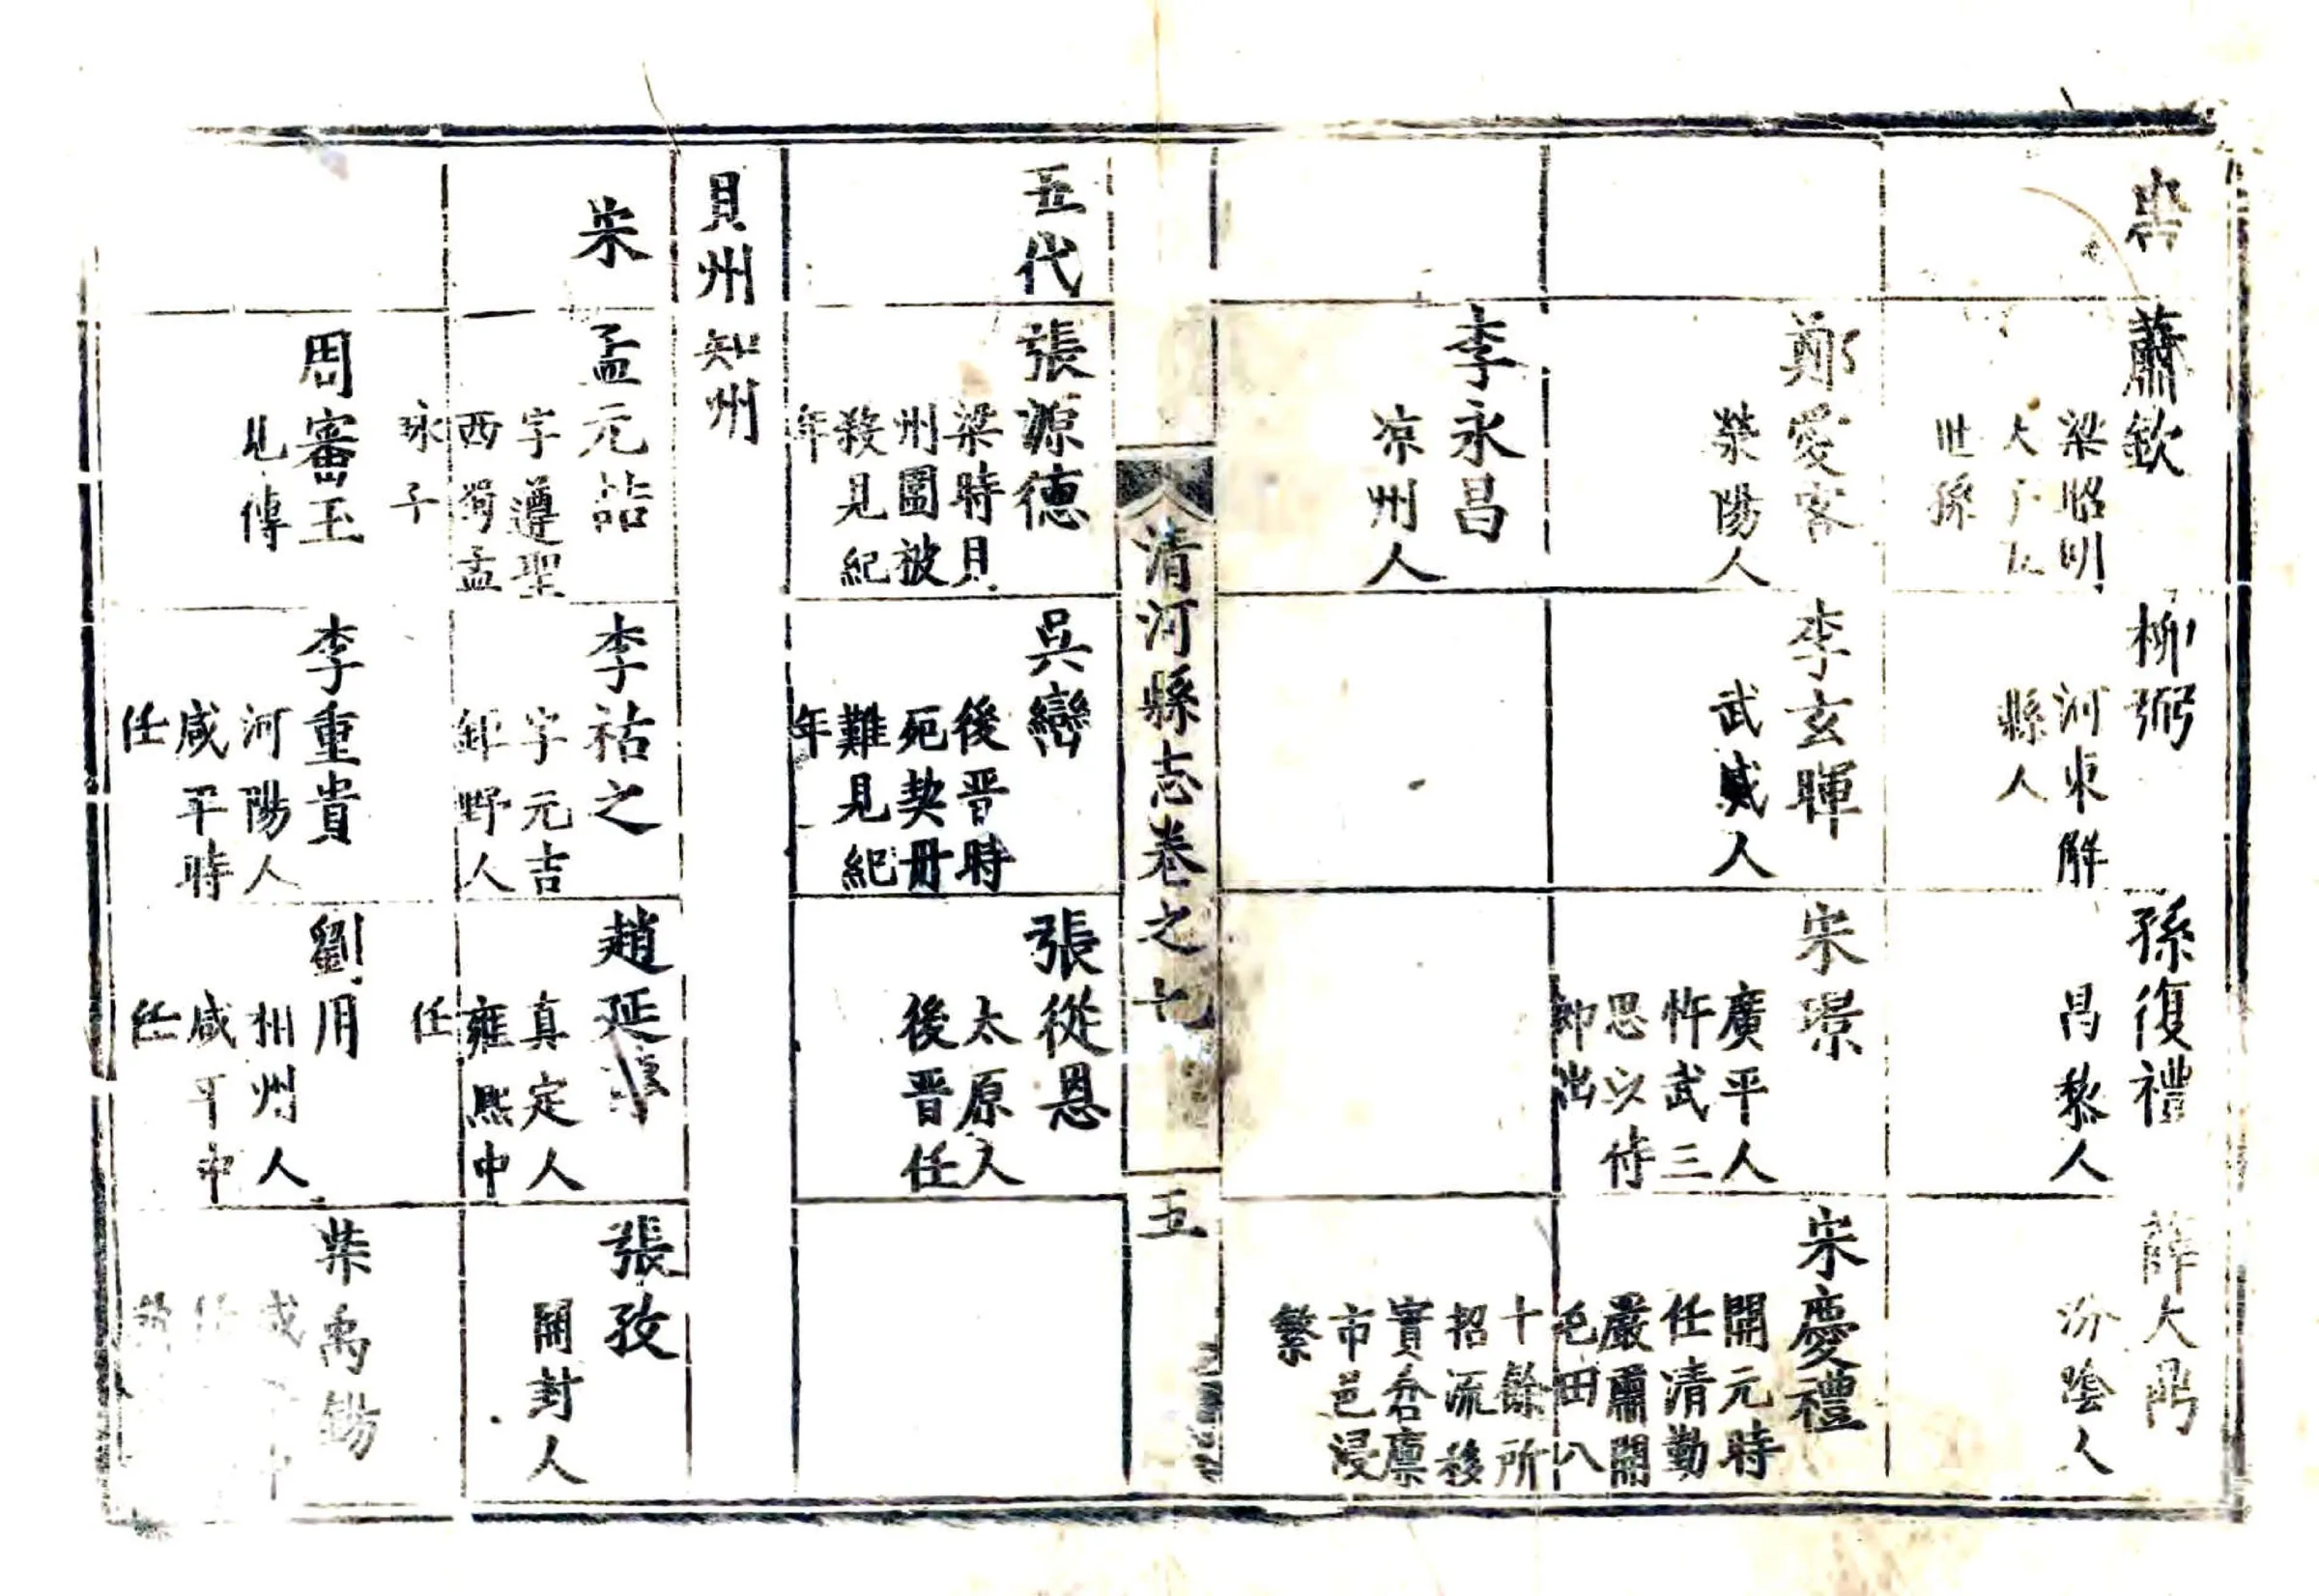 蕭欽
梁昭明
世孫
柳弼
河東解
縣人
孫復禮
昌黎人
薛大鼎
汾陰人
鄭愛客
滎陽人
李玄暉
武威人
宋璟
廣平人
忤武三
思以侍
御出
宋慶禮
開元時
任清勤
嚴肅開
屯田八
十餘所
招流移
實倉廩
市邑浸
繁
李永昌
凉州人
清河縣志卷之七
五
五代
張源德
梁時貝
州圍被
殺見紀
年
吳巒
後晋時
死契丹
難見紀
年
張從恩
太原人
後晋任
貝州知州
宋
孟元喆
字遵聖
西蜀孟
昶子
李祜之
字元吉
鉅野人
趙延
真定人
雍熙中
任
張孜
開封人
周審玉
見傳
李重貴
河陽人
咸平時
任
劉用
相州人
咸平中
任
柴禹錫